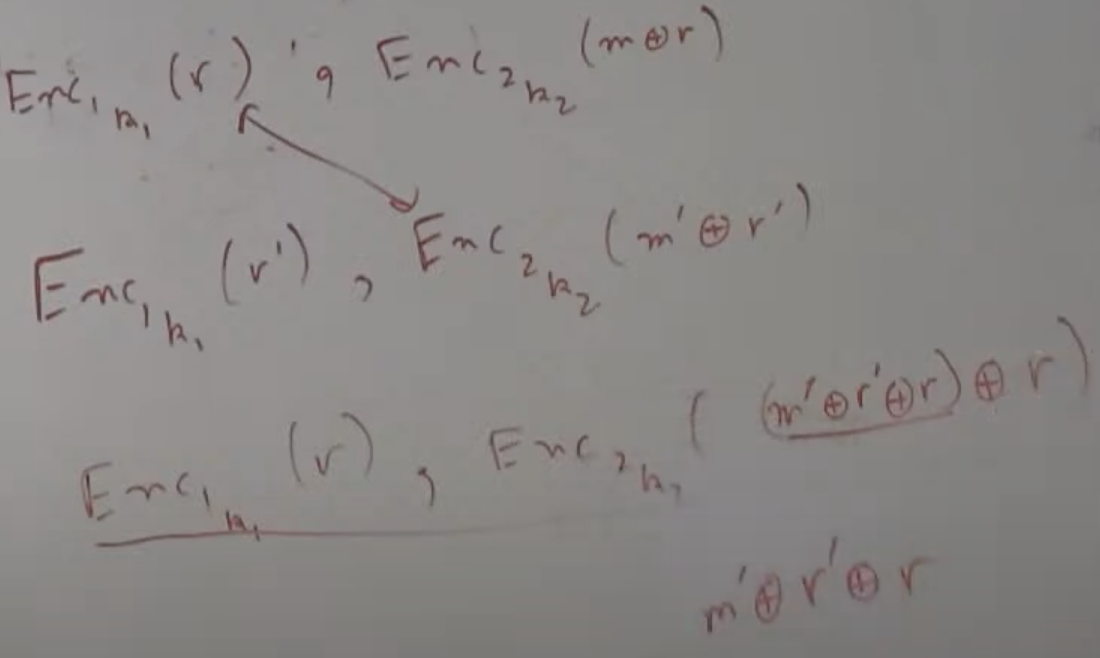 Enc₁ₖ₁ (r) , Enc₂ₖ₂ (m⊕r)
Enc₁ₖ₁ (r') , Enc₂ₖ₂ (m'⊕r')
Enc₁ₖ₁ (r) , Enc₂ₖ₂ ( (m'⊕r'⊕r)⊕r )
m'⊕r'⊕r